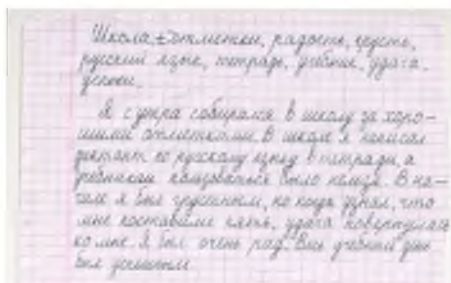 Школа – отметки, радость, грусть,
русский язык, тетрадь, учебник, удача,
успехи.
Я с утра собирался в школу за хоро-
шими отметками. В школе я написал
диктант по русскому языку в тетради, а
учебником пользоваться было нельзя. В на-
чале я был грустным, но когда узнал, что
мне поставили пять, удача повернулась
ко мне. Я был очень рад. Весь учебный день
был успешным.